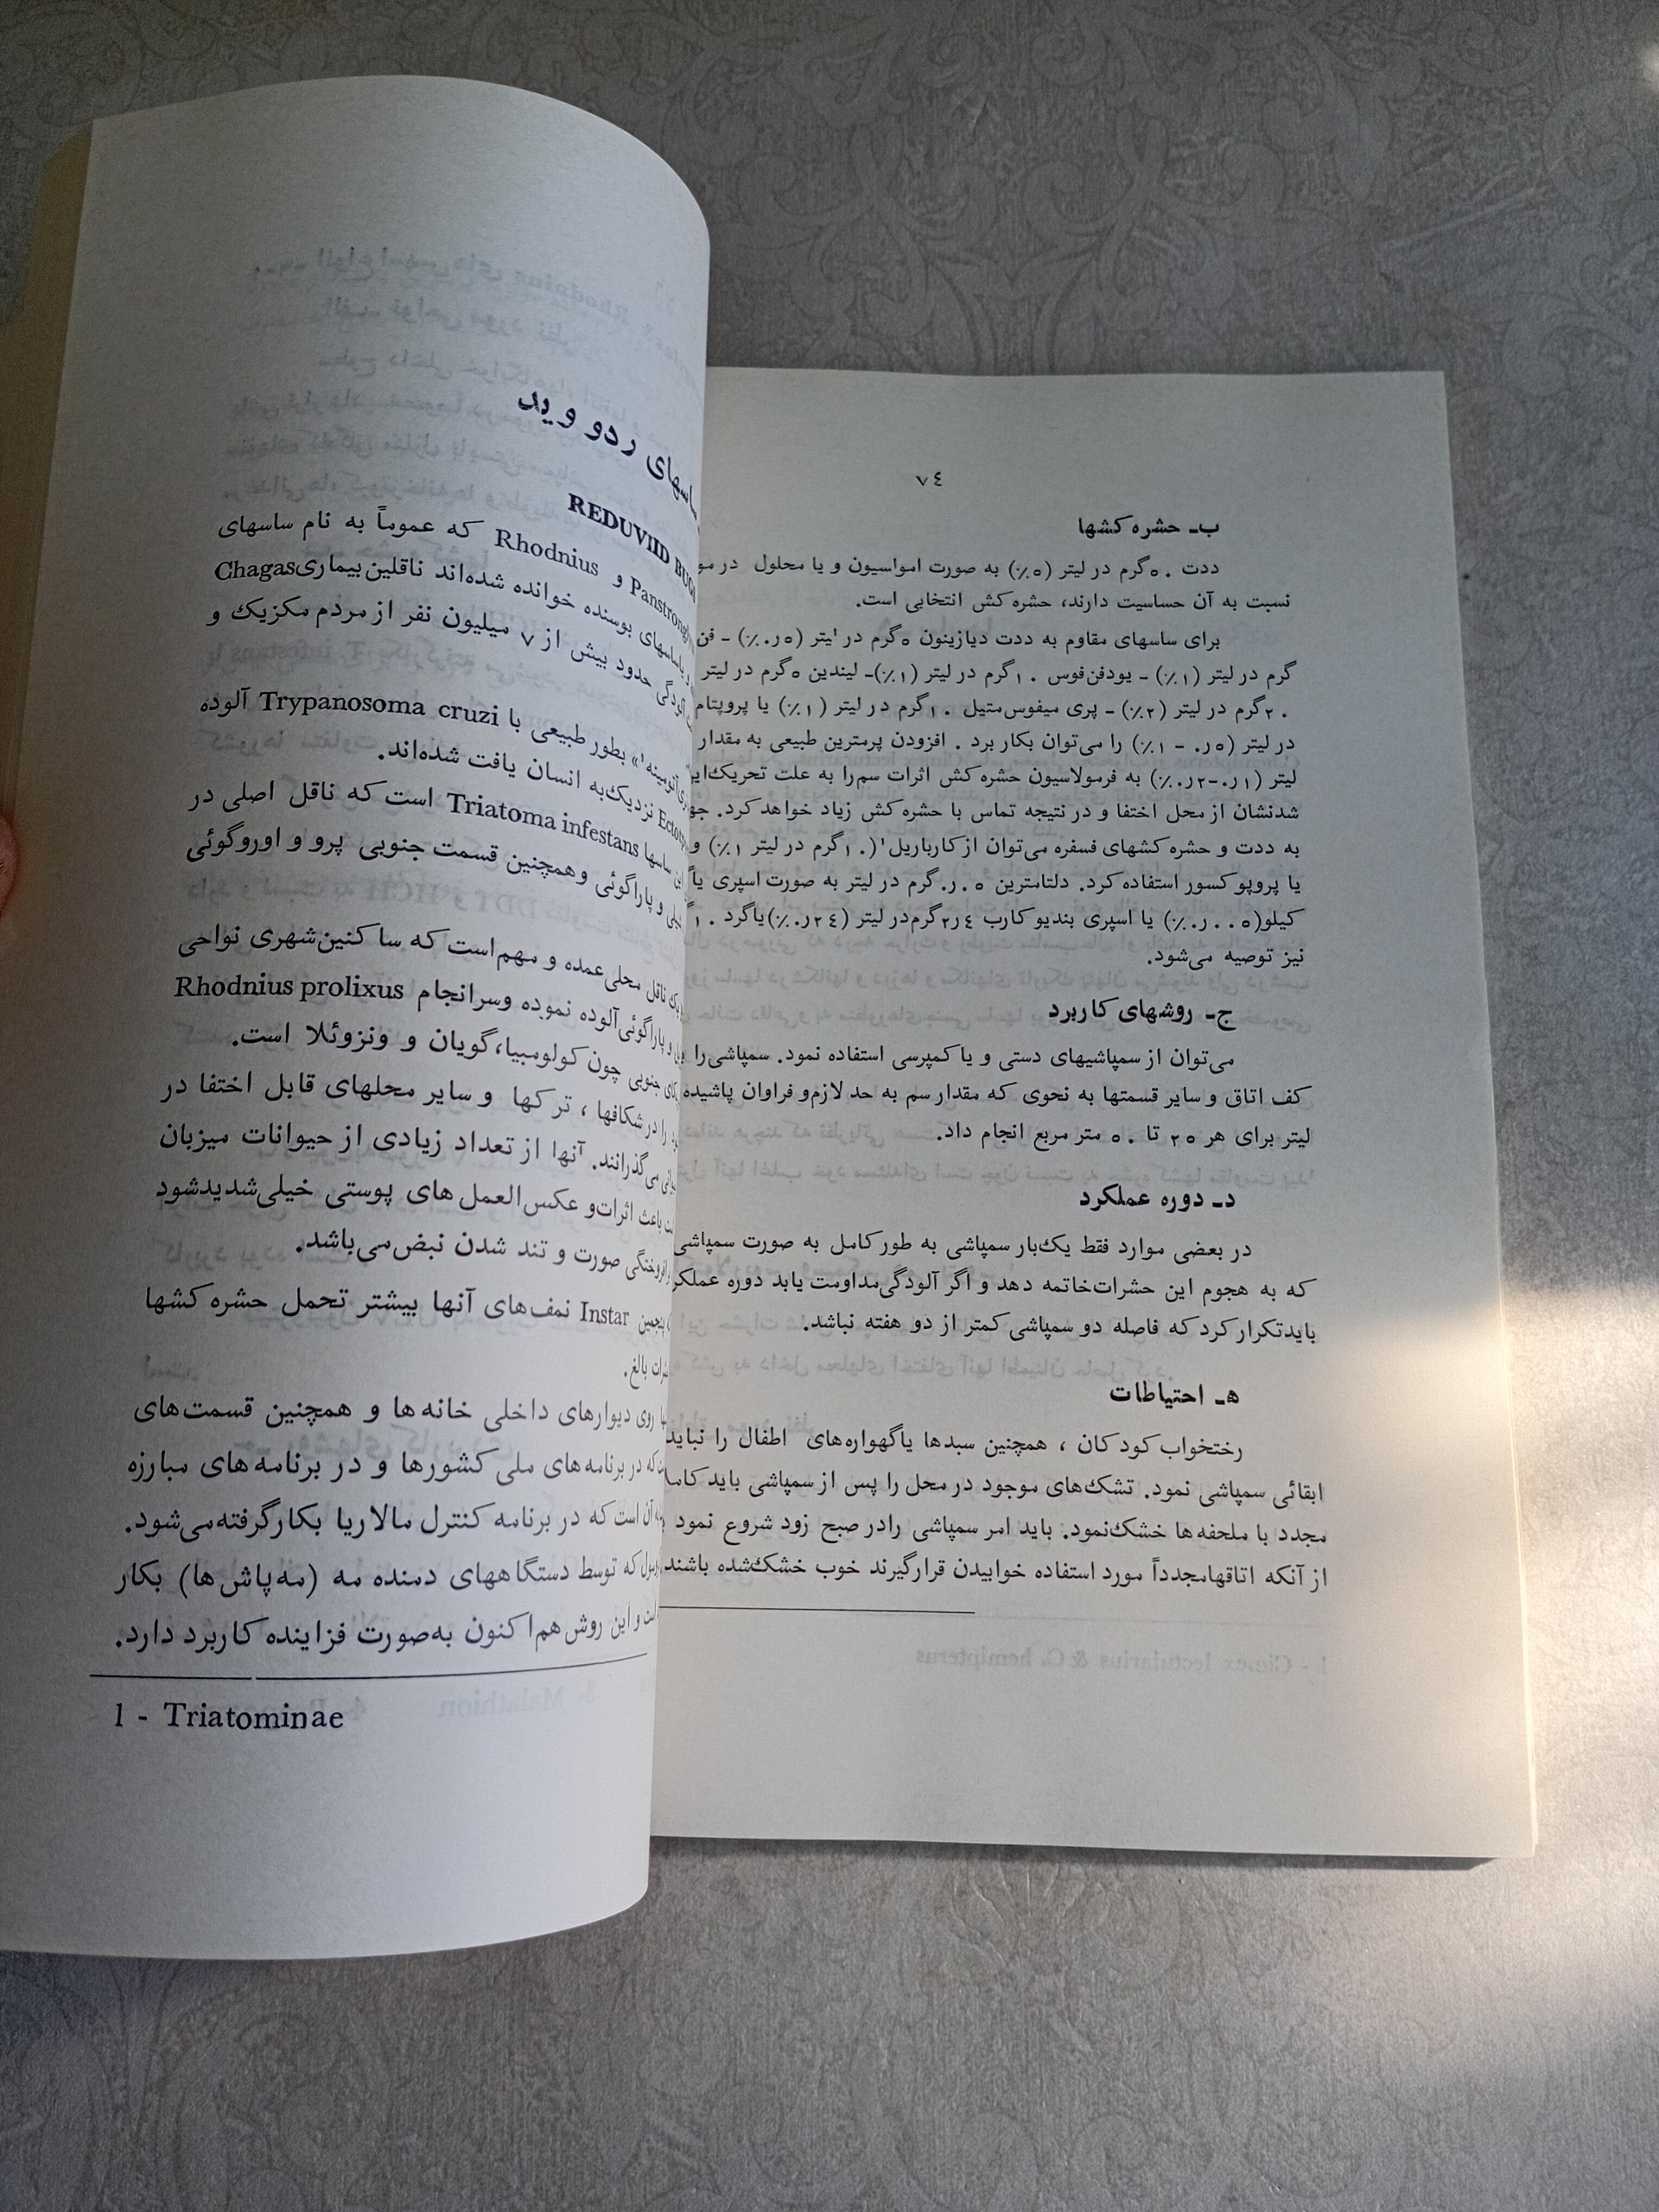 ٧٤
ب- حشره کشها
ددت ۵۰ گرم در لیتر (۵٪) به صورت امواسیون و یا محلول در
نسبت به آن حساسیت دارند، حشره کش انتخابی است.
برای ساسهای مقاوم به ددت دیازینون ۵ گرم در لیتر (۵ر۰٪) -
گرم در لیتر (۱٪) - یودفن فوس ۱۰ گرم در لیتر (۱٪)- لیندین ۵ گرم در لیتر
۲۰ گرم در لیتر (۲٪) - پری میفوس متیل ۱۰ گرم در لیتر (۱٪) یا
در لیتر (۵ر۰ - ۱٪) را می‌توان بکار برد . افزودن پرمترین طبیعی به مقدار
لیتر (۱ر۰-۲ر۰٪) به فرمولاسیون حشره کش اثرات سم را به علت تحریک
شدنشان از محل اختفا و در نتیجه تماس با حشره کش زیاد خواهد کرد.
به ددت و حشره کشهای فسفره می‌توان از کارباریل۱ (۱۰ گرم در لیتر ۱٪) و
یا پروپوکسور استفاده کرد. دلتامترین ۰۵ر۰ گرم در لیتر به صورت اسپری یا
کیلو(۰۰۵ر۰٪) یا اسپری بندیو کارب ۲ر۴ گرم در لیتر (۲۴ر۰٪) یا گرد
نیز توصیه می‌شود.
ج- روشهای کاربرد
می‌توان از سمپاشیهای دستی و یا کمپرسی استفاده نمود. سمپاشی را
کف اتاق و سایر قسمتها به نحوی که مقدار سم به حد لازم و فراوان پاشیده
لیتر برای هر ۲۵ تا ۵۰ متر مربع انجام داد.
د- دوره عملکرد
در بعضی موارد فقط یک‌بار سمپاشی به طور کامل به صورت سمپاشی
که به هجوم این حشرات خاتمه دهد و اگر آلودگی مداومت یابد دوره
باید تکرار کرد که فاصله دو سمپاشی کمتر از دو هفته نباشد.
ه- احتیاطات
رختخواب کودکان ، همچنین سبدها یا گهواره‌های اطفال را نباید
ابقائی سمپاشی نمود. تشک‌های موجود در محل را پس از سمپاشی باید
مجدد با ملحفه ها خشک نمود. باید امر سمپاشی را در صبح زود شروع نمود
از آنکه اتاقها مجدداً مورد استفاده خوابیدن قرار گیرند خوب خشک شده باشند
ردو وید
REDUVIID
و Rhodnius که عموماً به نام ساسهای
بوسنده خوانده شده‌اند ناقلین بیماری Chagas
آلودگی حدود بیش از ۷ میلیون نفر از مردم مکزیک و
بطور طبیعی با Trypanosoma cruzi آلوده
نزدیک به انسان یافت شده‌اند.
ساسها Triatoma infestans است که ناقل اصلی در
و پاراگوئی و همچنین قسمت جنوبی پرو و اوروگوئی
یک ناقل محلی عمده و مهم است که ساکنین شهری نواحی
و پاراگوئی آلوده نموده و سرانجام Rhodnius prolixus
جنوبی چون کولومبیا، گویان و ونزوئلا است.
را در شکافها ، ترکها و سایر محلهای قابل اختفا در
می گذرانند. آنها از تعداد زیادی از حیوانات میزبان
باعث اثرات و عکس‌العمل های پوستی خیلی شدید شود
صورت و تند شدن نبض می‌باشد.
Instar نمف‌های آنها بیشتر تحمل حشره کشها
بالغ.
روی دیوارهای داخلی خانه ها و همچنین قسمت‌های
که در برنامه های ملی کشورها و در برنامه های مبارزه
آن است که در برنامه کنترل مالاریا بکار گرفته می‌شود.
که توسط دستگاههای دمنده مه (مه‌پاش ها) بکار
و این روش هم‌اکنون به‌صورت فزاینده کاربرد دارد.
1 - Triatominae